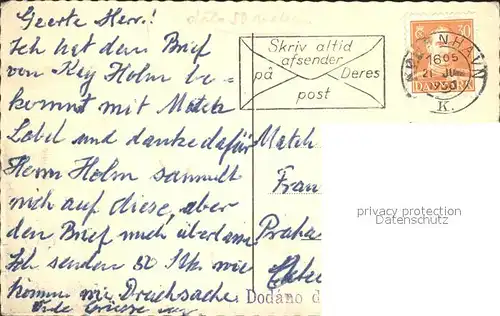 Geerte Herr.!
Ich hat dem Brief
von Kay Holm be-
kommt mit Match
Label und danke dafür
Herrn Holm sammelt
nich auf diese, aber
den Brief mich
Ich senden 50 Stk. wie
kommen wie Drucksache.
Skriv altid
afsender
på Deres
post
KØBENHAVN
16 05
21 JU
1950
K.
30
DANMARK
Match
Frau
Praha
Dodáno d
privacy protection
Datenschutz